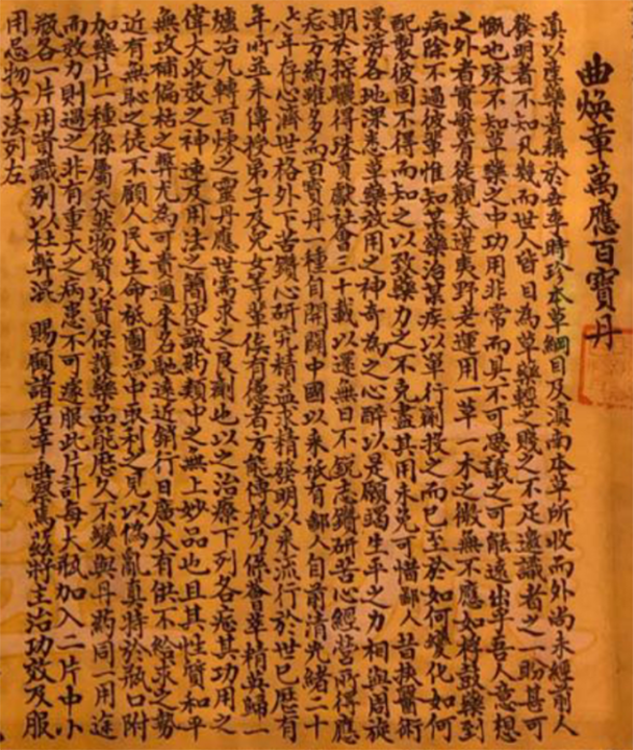 曲煥章萬應百寶丹
滇以產藥著稱於吾華時珍本草綱目及滇南本草所收而外尚未經前人
發明者不知凡幾而世人皆目為草藥輕之賤之不足邀識者之一盼甚可
慨也殊不知草藥之中功用非常而具不可思議之可能遠出乎吾人意想
之外者實繁有徒觀夫逆夷野老運用一草一木之微無不應如桴鼓藥到
病除不過彼輩惟知某藥治某疾以單行劑投之而已至於如何變化如何
配製彼固不得而知之以致藥力之不克盡其用未免可惜鄙人昔挾醫術
漫游各地深悉草藥效用之神奇為之心醉以是願竭生平之力相與周旋
期於探驪得珠貢獻社會三十載以還無日不銳志鑽研苦心經營所得應
症方藥雖多而百寶丹一種自開闢中國以來祇有鄙人自前清光緒二十
八年存心濟世格外下苦鑽心研究精益求精發明以來流行於世已歷有
年所並未傳授弟子及兒女等輩俟有德者方能傳授乃係薈萃精英歸一
爐冶九轉百煉之靈丹應世需求之良劑也以之治療下列各症其功用之
偉大收效之神速及用法之簡便誠藥類中之無上妙品也且其性質和平
無攻補偏枯之弊尤為可貴邇來名馳遠近銷行日廣大有供不給求之勢
近有無恥之徒不顧人民生命於圖漁中取利之見以偽亂真特於瓶口附
加藥片一種係屬天然物質以資保護藥品能歷久不變與丹藥同一用途
而效力則過之非有重大之病患不可遽服此片計每大瓶加入二片中小
瓶各一片用資識別以杜弊混　賜顧諸君幸垂察焉茲將主治功效及服
用忌物方法列左